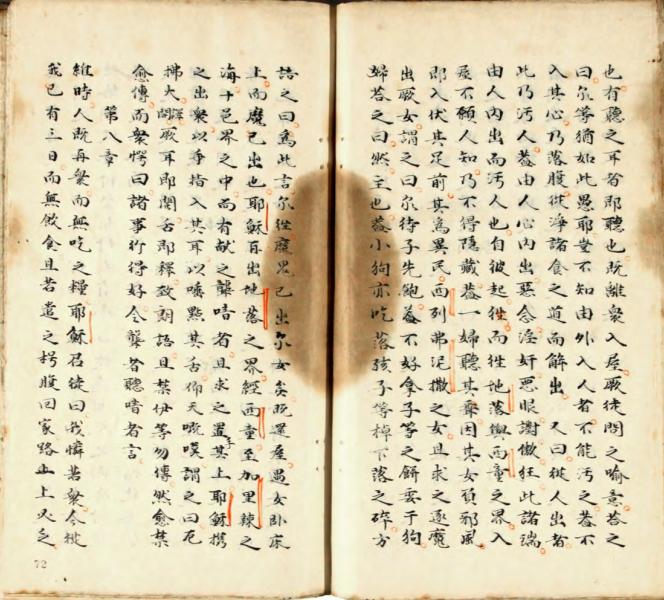 也有聽之耳者即聽也既離衆入屋厥徒問之喻意荅之
曰尔等猶如此愚耶豈不知由外入人者不能污之葢不
入其心乃落腹從淨諸食之道而解出又曰從人出者
此乃污人葢由人心內出惡念淫奸惡眼謝慠狂此諸端
由人內出而污人也自彼起徃而徃地落與西童之界入
屋不願人知乃不得隱藏葢一婦聽其來因其女負邪風
即入伏其足前其爲異民西列弗泥撒之女且求之逐魔
出厥女謂之曰尔待子先飽葢不好拿子等之餅委于狗
婦荅之曰然主也葢小狗亦吃落孩子等棹下落之碎方
語之曰爲此言尔徃魔已出尔女矣既還屋遇女卧床
上而魔已出也耶穌再出地落之界經西童至加里辣之
海十邑界之中而有獻之聾啞者且求之置手其上耶穌携
之出衆以手指入其耳以唾點其舌仰天嘅嘆謂之曰厄
弗大譯開厥耳即開舌即釋致詞語且禁伊等勿傳然愈禁
愈傳而衆愕曰諸事行得好令聾者聽啞者言
第八章
維時人既再衆而無吃之糧耶穌召徒曰我憐若衆今從
我已有三日而無做食且若遣之枵腹回家路上必之
72